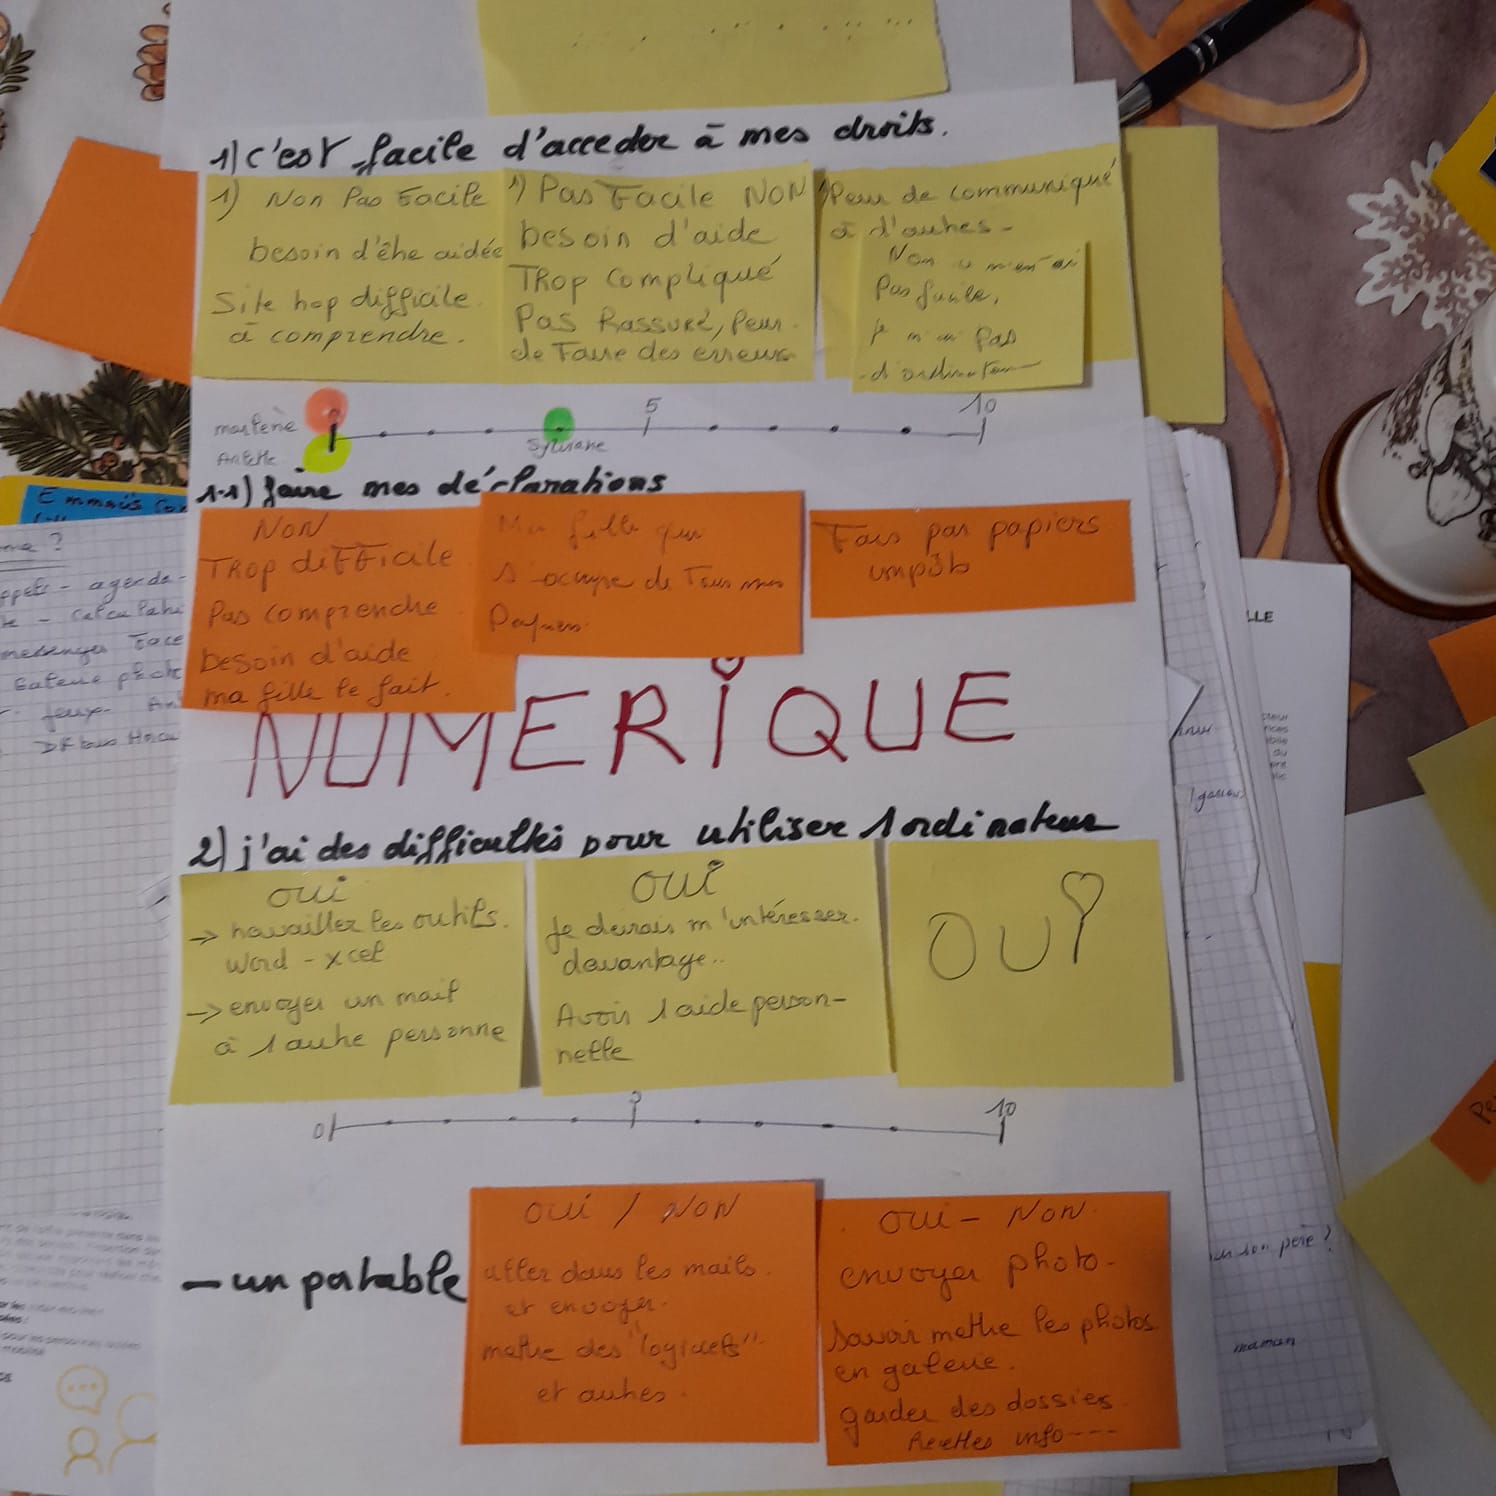 1) c'est facile d'acceder à mes droits.
1) Non Pas Facile
besoin d'être aidée
Site trop difficile
à comprendre.
1) Pas Facile NON
besoin d'aide
Trop Compliqué
Pas Rassuré, Peur
de Faire des erreurs
Peur de communiqué
à d'autres -
Non
Pas facile,
je n'ai Pas
d'ordinateur
5
10
marlène
Arlette
Sylviane
1.1) faire mes déclarations
NON
Trop difficile
Pas comprendre
besoin d'aide
ma fille le fait.
Ma fille qui
s'occupe de Tous mes
Papiers.
Fais par papiers
impôts
NUMERIQUE
2) j'ai des difficultés pour utiliser l'ordinateur
OUI
-> travailler les outils.
Word - xcel
-> envoyer un mail
à l'autre personne
OUI
Je devrais m'intéresser.
davantage..
Avoir l'aide person-
nelle
OUI
0
5
10
- un portable
OUI / NON
aller dans les mails.
et envoyer.
mettre des "logiciels"
et autres.
OUI - NON
envoyer photo.
Savoir mettre les photos
en galerie.
garder des dossiers
Recettes info----
Emmaüs Con
agenda -
messenger Face
Galerie photo
jeux -
LLE
son père ?
maman